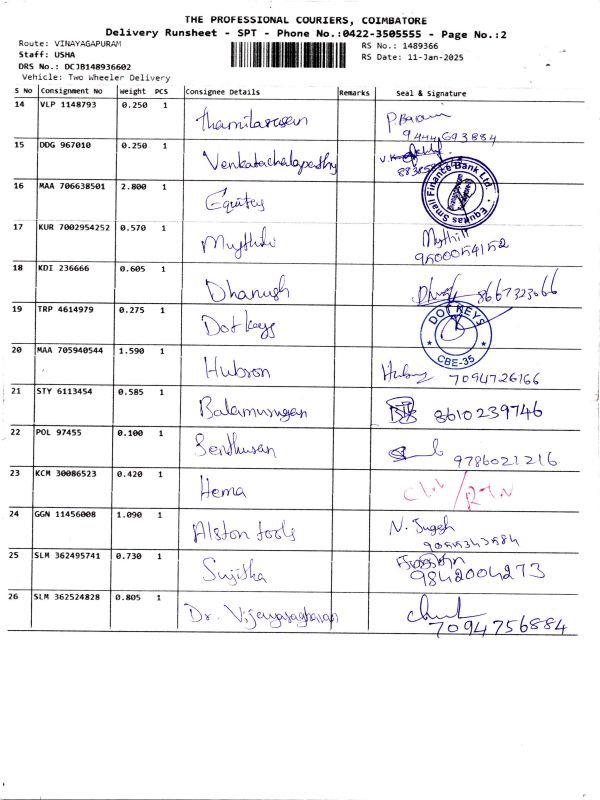 THE PROFESSIONAL COURIERS, COIMBATORE
Delivery Runsheet - SPT - Phone No.:0422-3505555 - Page No.:2
Route: VINAYAGAPURAM RS No.: 1489366
Staff: USHA RS Date: 11-Jan-2025
DRS No.: DCJB148936602
Vehicle: Two Wheeler Delivery
S No Consignment No Weight PCS Consignee Details Remarks Seal & Signature
14 VLP 1148793 0.250 1 Thamilarasan
9444693884
15 DDG 967010 0.250 1 Venkatachalapathy
16 MAA 706638501 2.800 1 Equitas
Equitas Small Finance Bank Ltd.
17 KUR 7002954252 0.570 1 Mythili Mythili
9500054152
18 KDI 236666 0.605 1 Dhanush 8667323066
19 TRP 4614979 0.275 1 Dot keys
DOT KEYS
CBE-35
20 MAA 705940544 1.590 1 Hubron
7094726166
21 STY 6113454 0.585 1 Balamurugan 8610239746
22 POL 97455 0.100 1 Senthusan
9786021216
23 KCM 30086523 0.420 1 Hema
24 GGN 11456008 1.090 1 Alston tools
9055343584
25 SLM 362495741 0.730 1 Sujitha
9842004273
26 SLM 362524828 0.805 1 Dr. Vijayaraghavan
7094756884